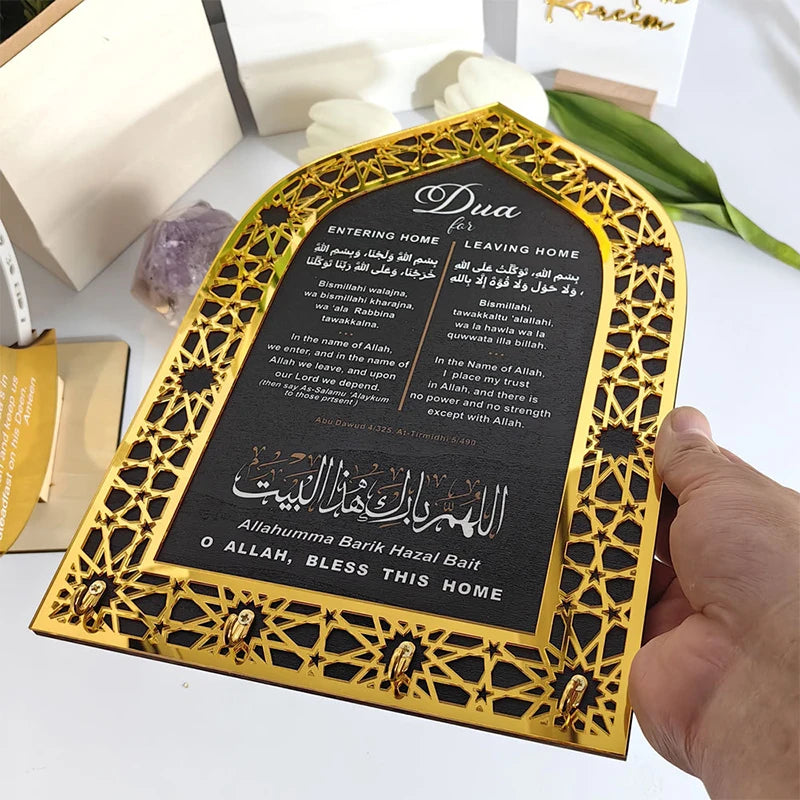 Kareem
Dua
for
ENTERING HOME
بِسْمِ اللهِ وَلَجْنَا، وَبِسْمِ اللهِ
خَرَجْنَا، وَعَلَى اللهِ رَبِّنَا تَوَكَّلْنَا
Bismillahi walajna,
wa bismillahi kharajna,
wa 'ala Rabbina
tawakkalna.
In the name of Allah,
we enter, and in the name of
Allah we leave, and upon
our Lord we depend.
(then say As-Salamu 'Alaykum
to those prtsent)
LEAVING HOME
بِسْمِ اللهِ، تَوَكَّلْتُ عَلَى اللهِ
، وَلَا حَوْلَ وَلَا قُوَّةَ إِلَّا بِاللهِ
Bismillahi,
tawakkaltu 'alallahi.
wa la hawla wa la
quwwata illa billah.
In the Name of Allah,
I place my trust
in Allah, and there is
no power and no strength
except with Allah.
Abu Dawud 4/325, At-Tirmidhi 5/490
اللهم بارك هذا البيت
Allahumma Barik Hazal Bait
O ALLAH, BLESS THIS HOME
and keep us
steadfast on his Deen.
Ameen